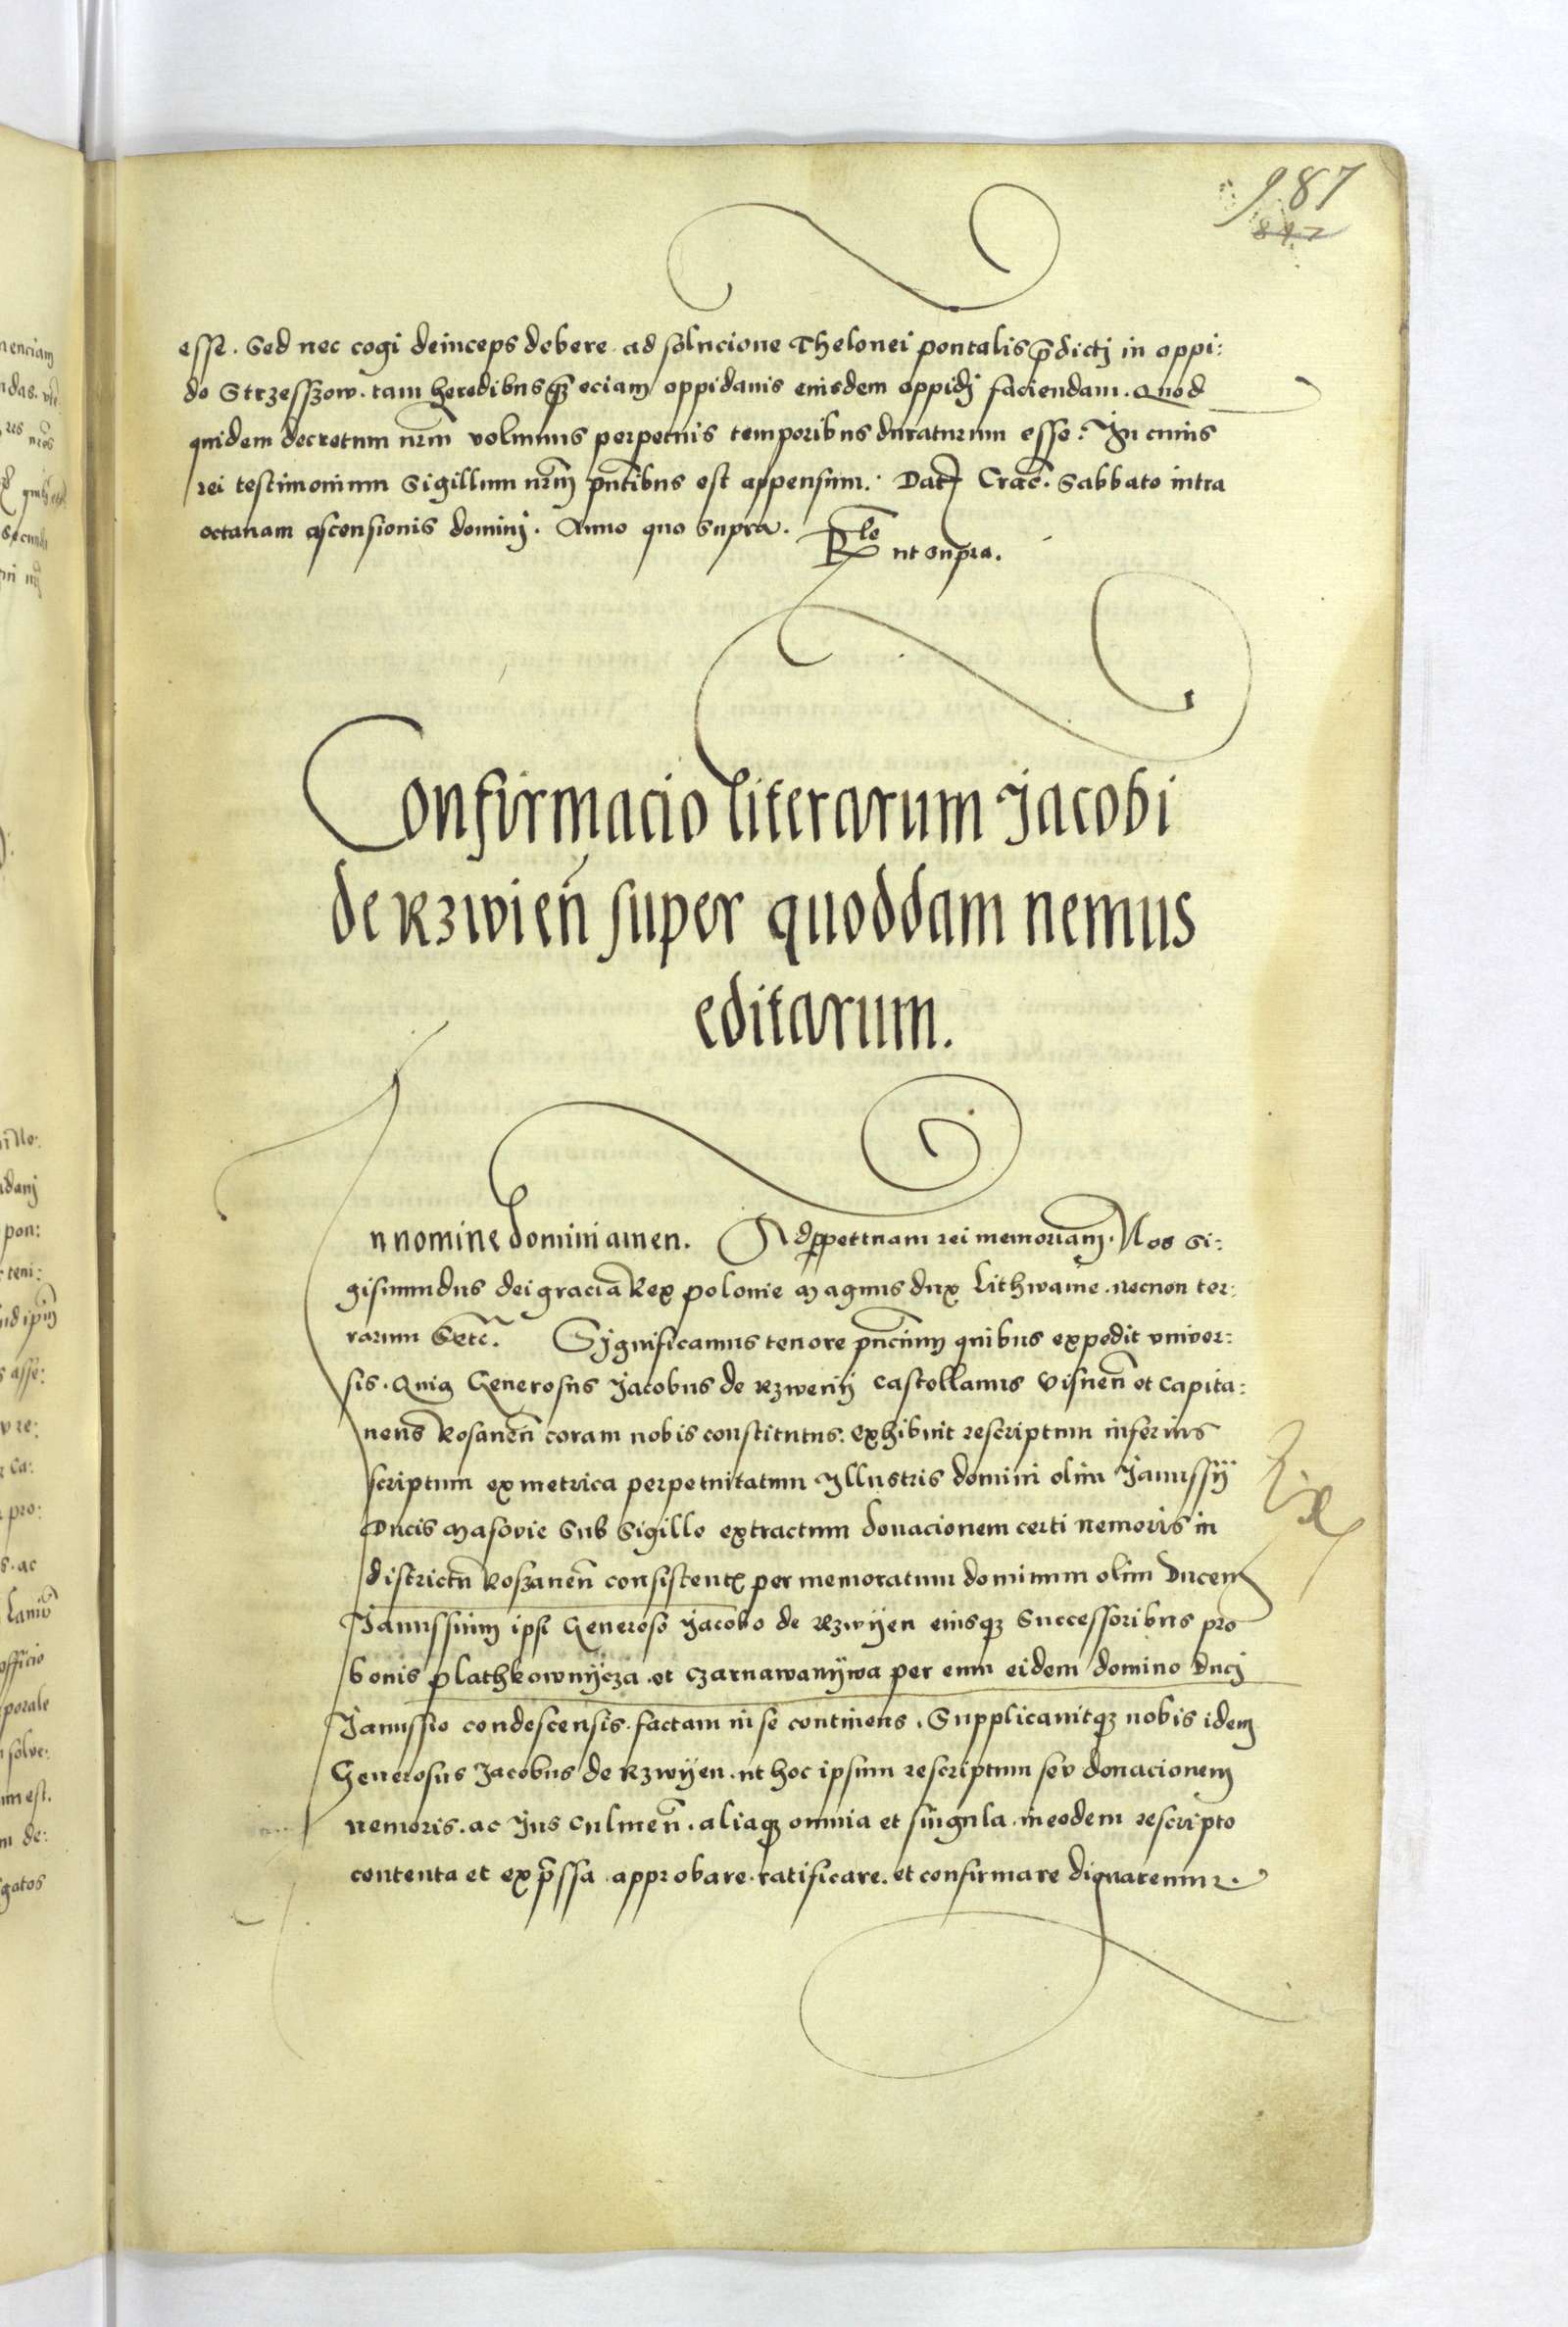 987
847
esse. Sed nec cogi deinceps debere ad solucione Thelonei pontalis p̄dictj in oppi:
do Strzesszow. tam heredibus q̄ȝ eciam oppidanis eiusdem oppidj faciendam. Quod
quidem decretum nr̄m volumus perpetuis temporibus duraturum esse. In cuius
rei testimonium Sigillum nr̄m pn̄tibus est appensum. Dat Crac̄. Sabbato intra
octauam ascensionis dominj. Anno quo supra.
Rl̄o ut supra.
Confirmacio literarum Jacobi
de Rzwien̄ super quoddam nemus
editarum.
In nomine domini amen. Ad ꝑpetuam rei memoriam. Nos Si:
gismundus dei gracia Rex polonie Magnus dux Lithwanie. necnon ter:
rarum &etc̄. Significamus tenore pn̄cium quibus expedit vniuer:
sis. Quia Generosus Jacobus de Rzwenij Castellanus Visnen̄ et Capita:
neus Rosanen̄ coram nobis constitutus. exhibuit rescriptum inferius
scriptum ex metrica perpetuitatum Illustris domini olim Janussij
Ducis Masovie Sub Sigillo extractum donacionem certi nemoris in
districtu Roszanen̄ consistentꝭ per memoratum dominum olim Ducem
Janussium ipsi Generoso Jacobo de Rzwijen eiusqȝ Successoribus pro
bonis plathkownijcza et Czarnawanijwa per eum eidem domino Ducj
Janussio condescensis. factam in se continens. Supplicauitqȝ nobis idem
Generosus Jacobus de Rzwijen. ut hoc ipsum rescriptum seu donacionem
nemoris. ac Jus Culmen̄. aliaqȝ omnia et singula in eodem rescripto
contenta et exp̄ssa approbare. ratificare. et confirmare dignaremur.